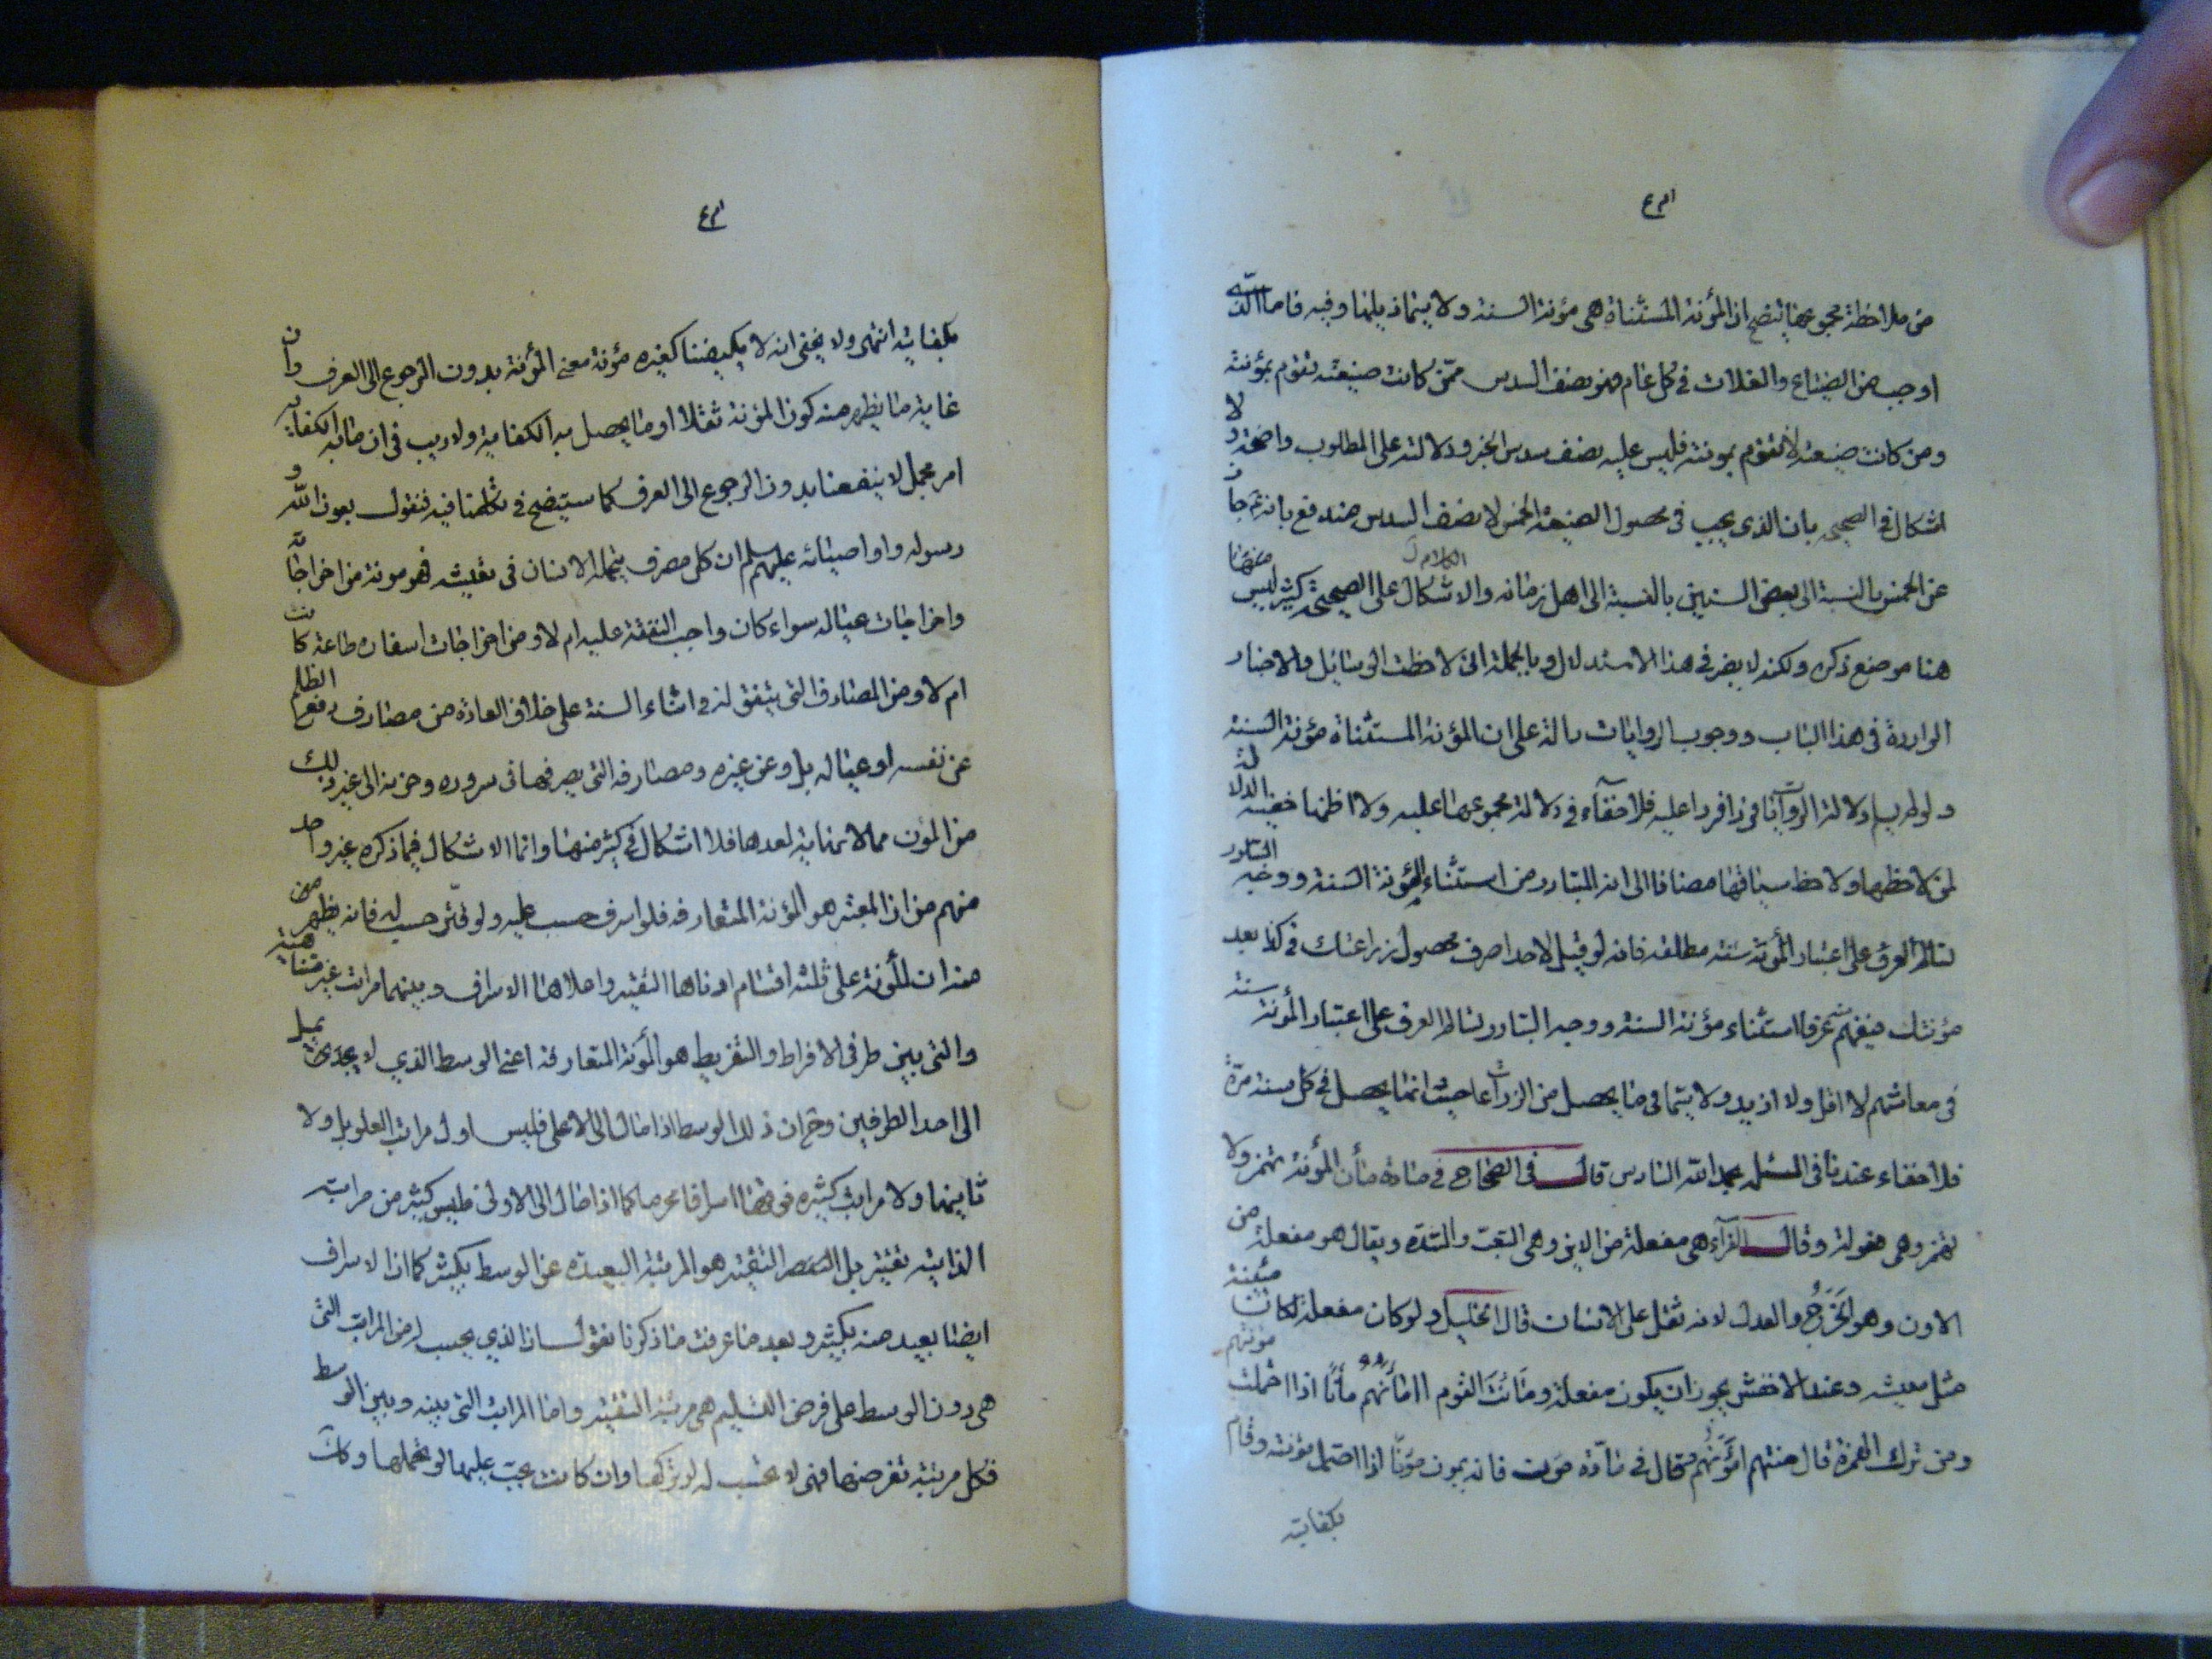 من ملاحظة مجموعها يتضح ان المؤنة المستثناة هى مؤنة السنة ولا سيما ذيلها وفيه فاما الذى
اوجب من الضياع والغلات فى كل عام فهو نصف السدس ممن كانت ضيعته تقوم بمؤنته
ومن كانت ضيعته لا تقوم بمونته فليس عليه نصف سدس الخبر ودلالته على المطلوب واضحة ولا
اشكال فى الصحيحه بان الذى يجب فى محصول الضيعة الخمس لا نصف السدس مندفع بانه تجاوز
عن الخمس بالنسبة الى بعض السنين بالنسبة الى اهل زمانه والاشكال على الصحيحة كثير ليس منها
هنا موضع ذكره ولكنه لا يضر فى هذا الاستدلال وبالجملة ان لاحظت الوسائل والاخبار
الواردة فى هذا الباب ووجوب الروايات دالة على ان المؤنة المستثناة مؤنة السنة
ولو لم يسلم دلالة الروايات فردا فردا عليه فلا خفاء فى دلالة مجموعها عليه ولا اظنها خفية الدلالة
لمن لاحظها ولاحظ سياقها مضافا الى انه المتبادر من استثناء المؤنة السنة ووجه التبادر
تسالم العرف على اعتبار المؤنة سنة مطلقه فانه لو قيل لاحد اصرف محصول زراعتك فى كذا بعد
مؤنتك فيفهم عرفا استثناء مؤنة السنة ووجه التبادر تسالم العرف على اعتبار المؤنة سنة
فى معاشهم لا اقل ولا ازيد ولا سيما فى ما يحصل من الزراعات حيث انما يحصل فى كل سنة مرة
فلا خفاء عندنا فى المسئلة بحمد الله قال فى الصحاح فى مادة مأن المؤنة تهمز ولا
تهمز وهى فعولة وقال الفراء هى مفعلة من الاين وهى التعب والشدة ويقال هو مفعلة من
الاون وهو الخرج والعدل لانه ثقل على الانسان قال الخليل ولو كان مفعلة لكان مئينة
مثل معيشة وعند الاخفش يجوز ان يكون مفعلة ومأنت القوم امأنهم مأنا اذا احملت مونتهم
ومن ترك الهمزة قال منتهم امونهم وقال فى مادة مون فانه يمون مونا اذا احتمل مؤنته وقام
بكفايته
بكفايته انتهى ولا يخفى انه لا يكفينا كغيره مؤنة معنى المؤنة بدون الرجوع الى العرف وان
غاية ما يظهر منه كون المؤنة ثقلا او ما يحصل به الكفاية ولا ريب فى ان ما به الكفاية
امر مجمل لا ينفعنا بدون الرجوع الى العرف كما سيتضح فى تكلمنا فيه فنقول بعون الله و
رسوله واوصيائه عليهم سلم ان كل مصرف يتحمله الانسان فى تعيشه فهو مونة من اخراجاته
واخراجات عياله سواء كان واجب النفقة عليه ام لا ومن اخراجات اسفاره طاعة كانت
ام لا ومن المصارف التى يتفق له فى اثناء السنة على خلاف العادة من مصارف دفع الظلم
عن نفسه او عياله بل وعن غيره ومصارفه التى يصرفها فى سروره وحزنه الى غير ذلك
من المؤن مما لا نهاية لعدها فلا اشكال فى كثير منها وانما الاشكال فيما ذكره غير واحد
منهم من ان المعتبر هو المؤنة المتعارفه فلو اسرف حسب عليه ولو قتر حسب له فانه يظهر من
هذا ان للمؤنة على ثلثة اقسام ادناها التقتير واعلاها الاسراف وبينهما مراتب غير متناهية
والتى بين طرفى الافراط والتفريط هو المؤنة المتعارفة اعنى الوسط الذي لا يميل
الى احد الطرفين وح ان ذلك الوسط اذا مال الى الاعلى فليس اول مراتب العلو بل ولا
ثانيها ولا مراتب كثيره فوقها اسرافا محرما كما اذا مال الى الادنى فليس كثير من مراتب
الدانية تقتير بل التقتير هو المرتبة البعيدة عن الوسط بكثير كما ان الاسراف
ايضا بعيد منه بكثير وبعد ما عرفت ما ذكرنا نقول ان الذي يحسب له من المراتب التى
هى دون الوسط على فرض التسليم هى مرتبة التقتير واما المراتب التى بينه وبين الوسط
فكل مرتبة تفرض منها فهى لا يحتسب له لو تركها وان كانت يحتسب عليها لو تحملها وكل